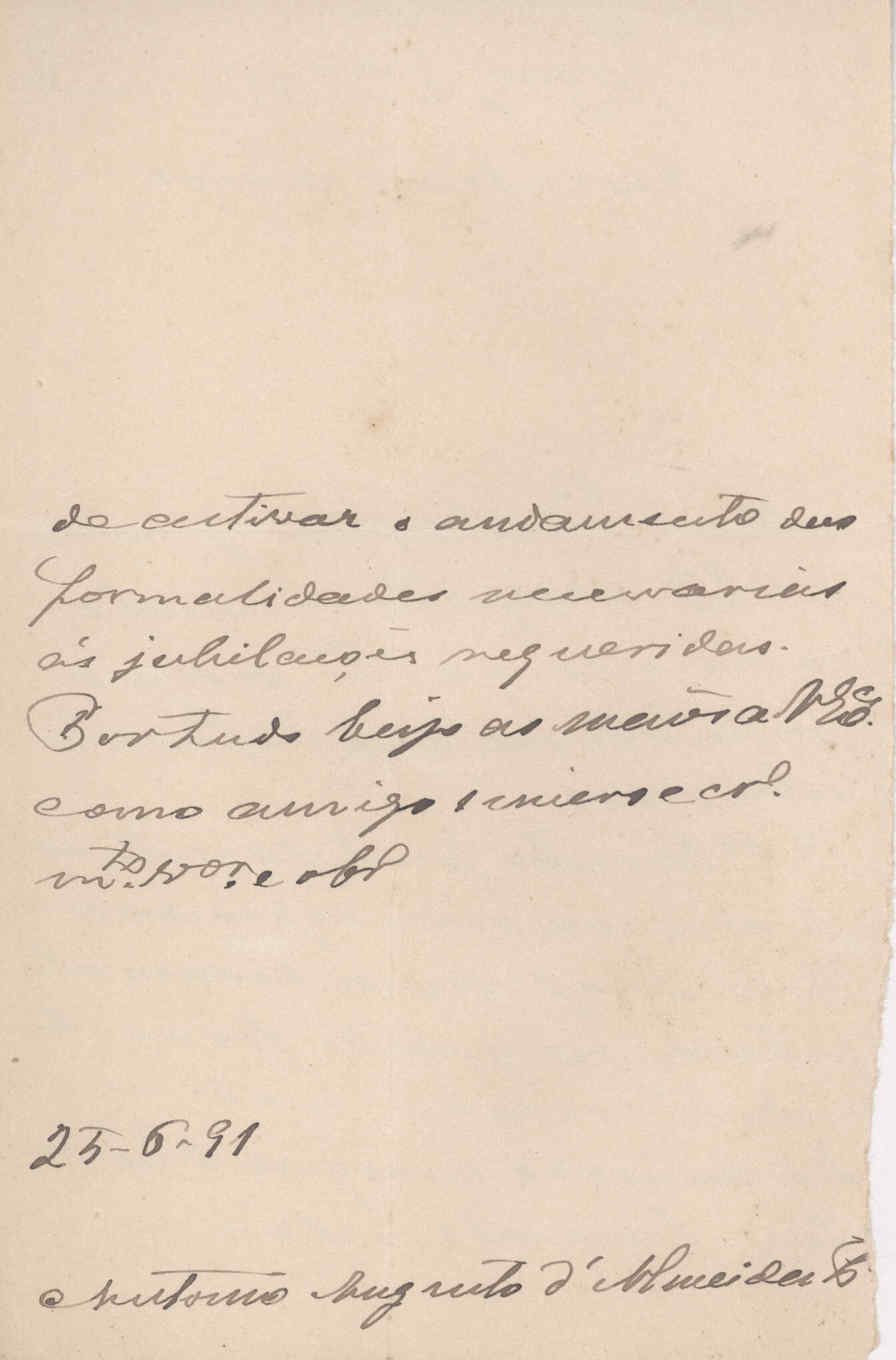 de activar o andamento das
formalidades necessarias
ás jubilações requeridas.
Por tudo beijo as mãos a V. Exª.
como amigo sincero e cr.º
m.to v.or e obº
25-6-91
Antonio Augusto d'Almeida